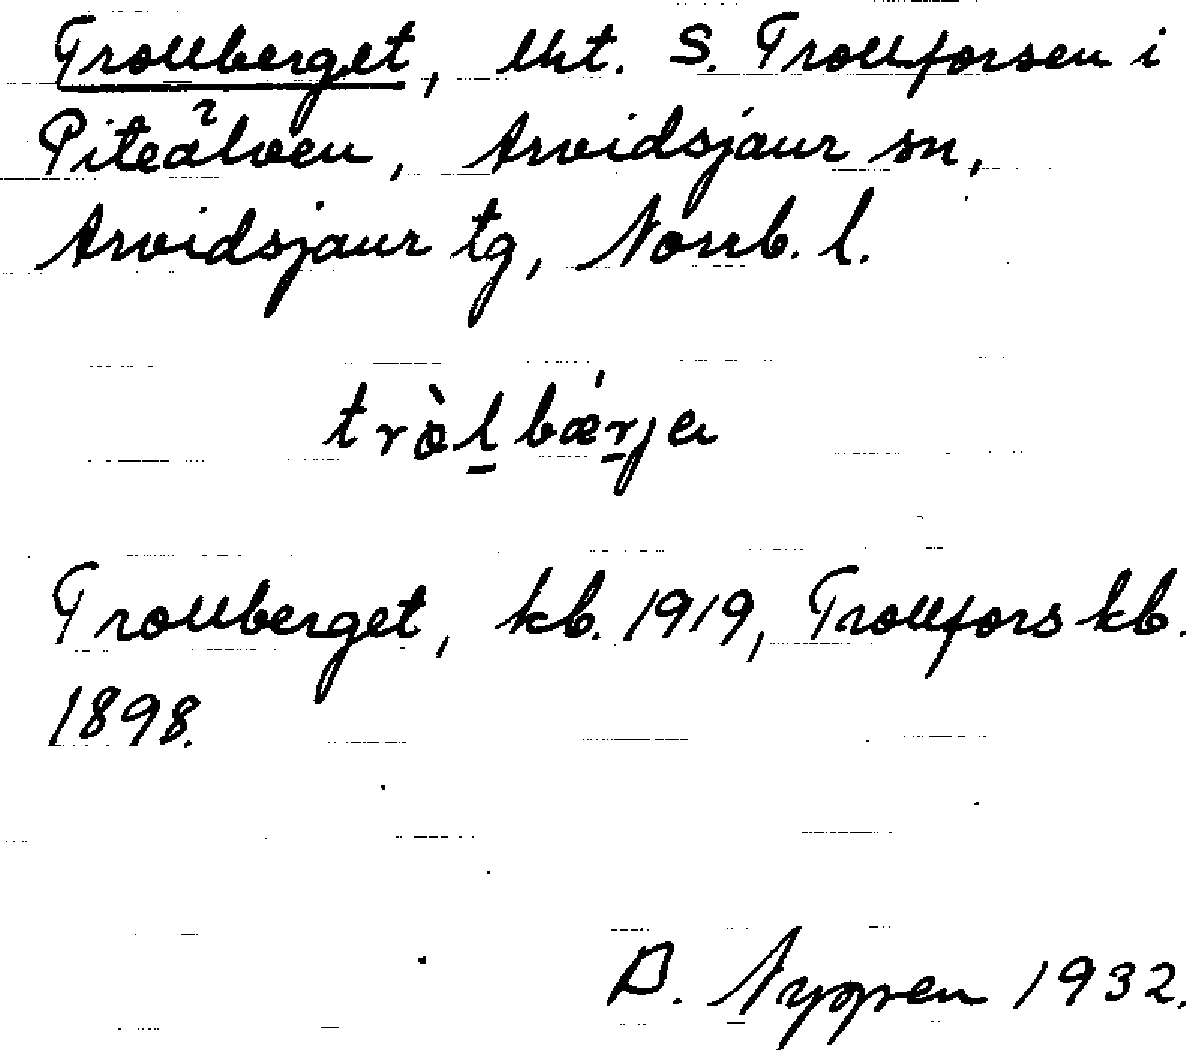 Trollberget, lht. S. Trollforsen i
Piteälven, Arvidsjaur sn,
Arvidsjaur tg, Norrb. l.
tròl̲bær̲ja
Trollberget, kb. 1919, Trollfors kb.
1898.
D. Nygren 1932.